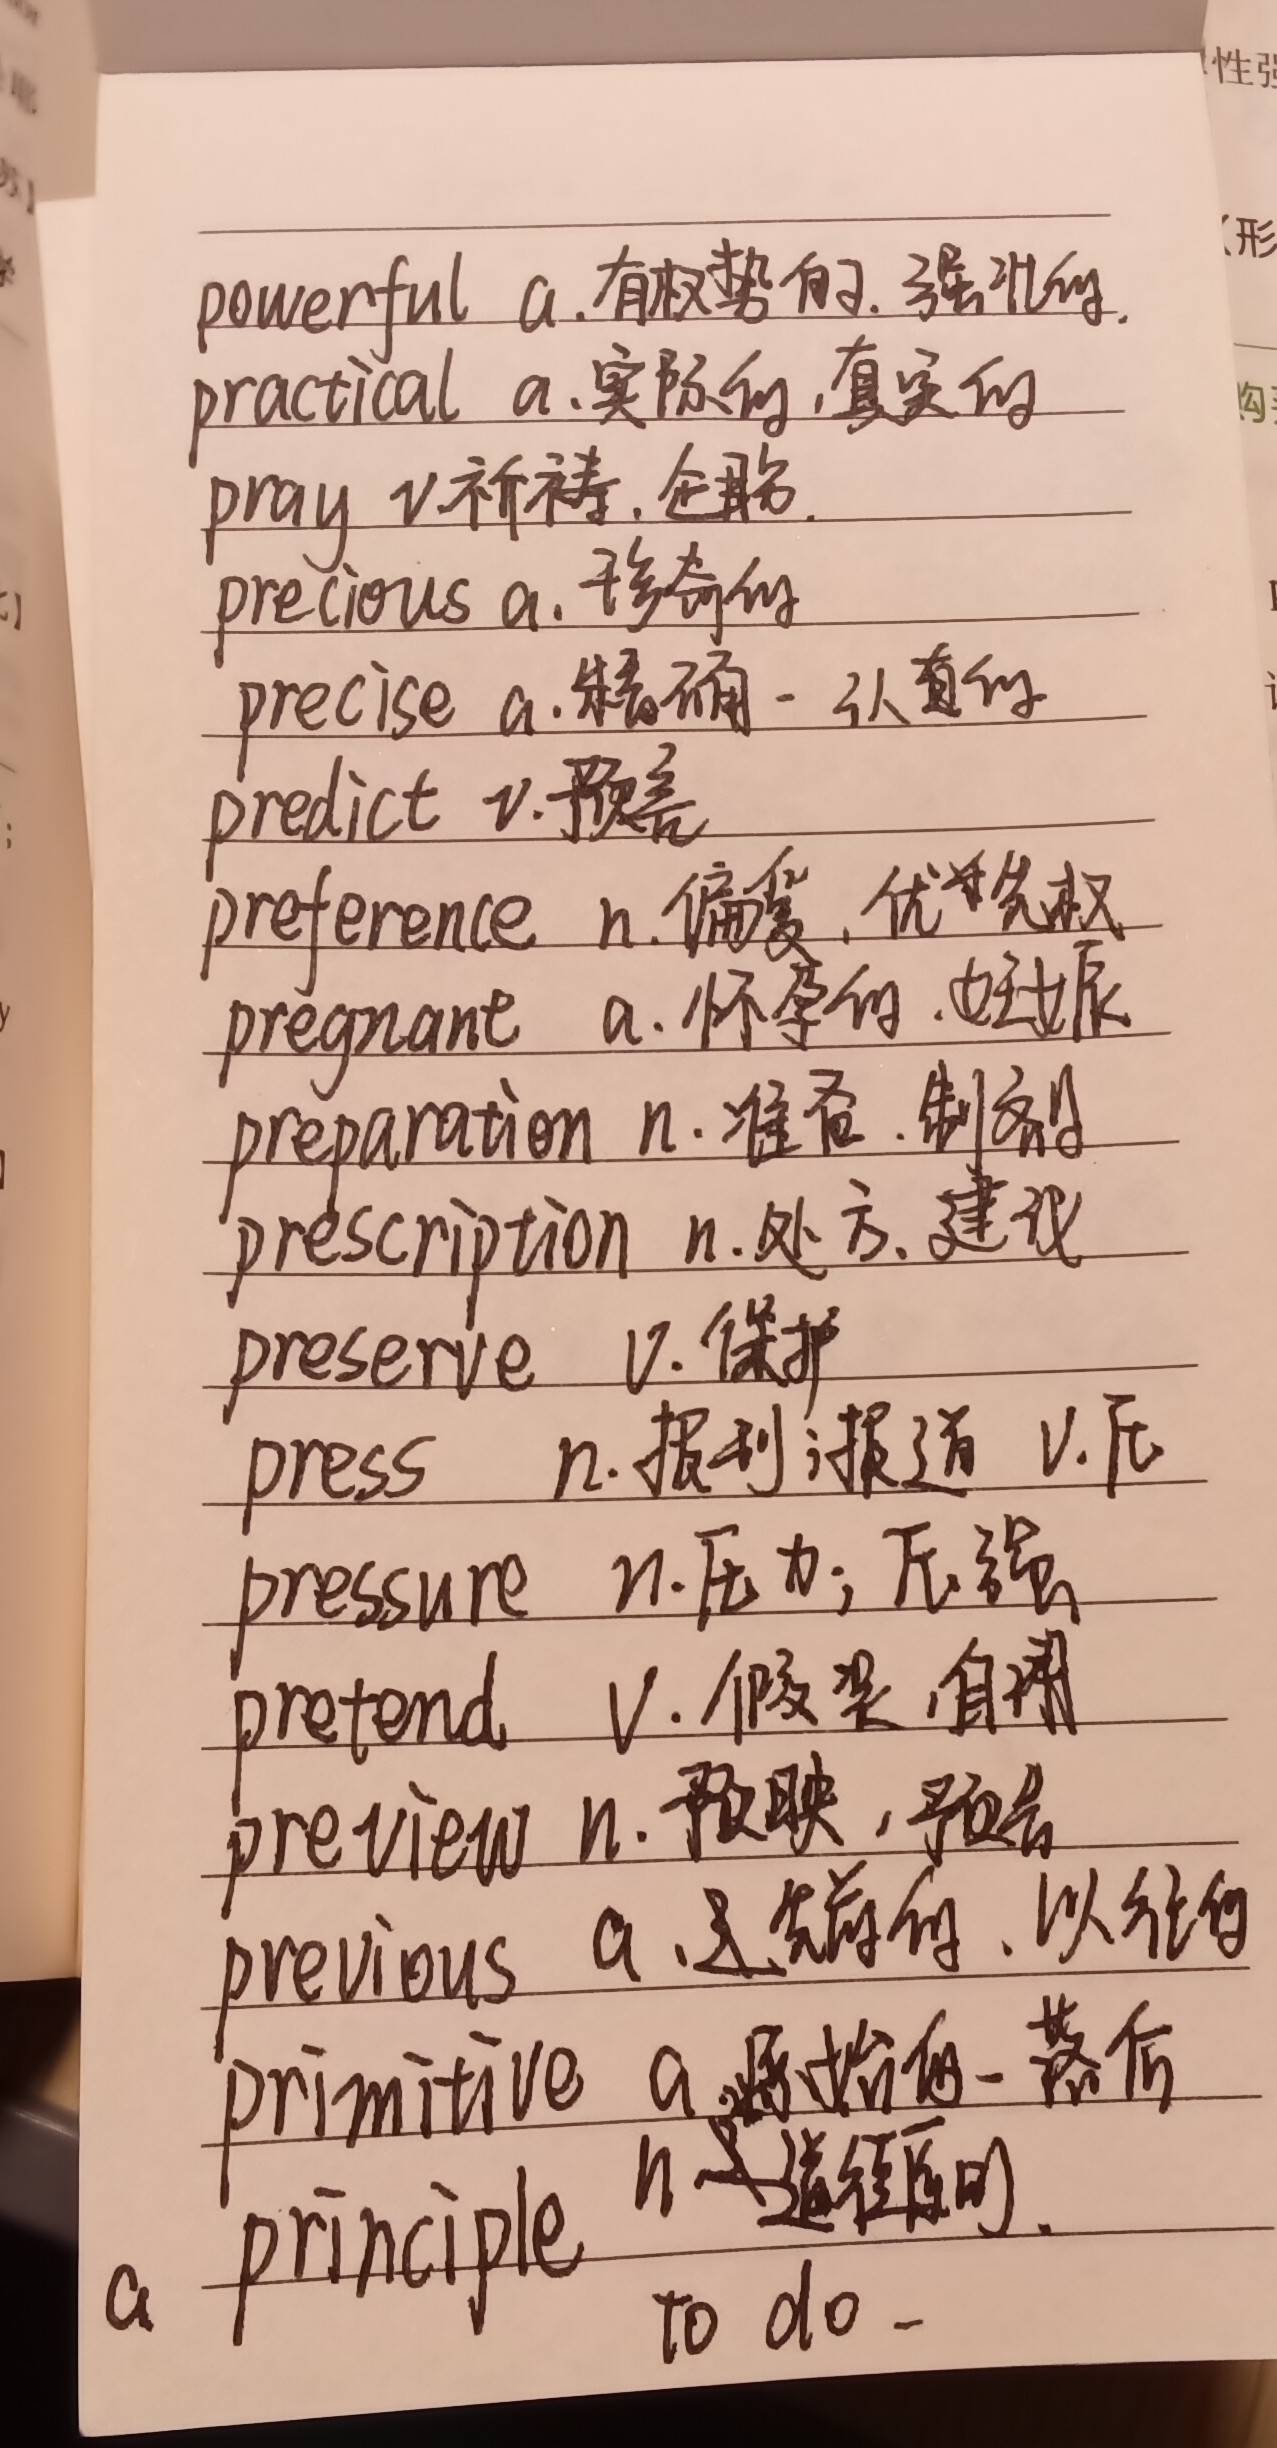 powerful a.有权势的.强壮的.
practical a.实际的,真实的
pray v.祈祷.企盼.
precious a.珍奇的
precise a.精确-认真的
predict v.预言
preference n.偏爱,优先权
pregnant a.怀孕的.妊娠
preparation n.准备.制剂
prescription n.处方.建议
preserve v.保护
press n.报刊;报道 v.压
pressure n.压力;压强
pretend v.假装,自诩
preview n.预映,预告
previous a.先前的、以往的
primitive a.原始的-落后
principle n.道德原则.
a to do -
性强
(形
购